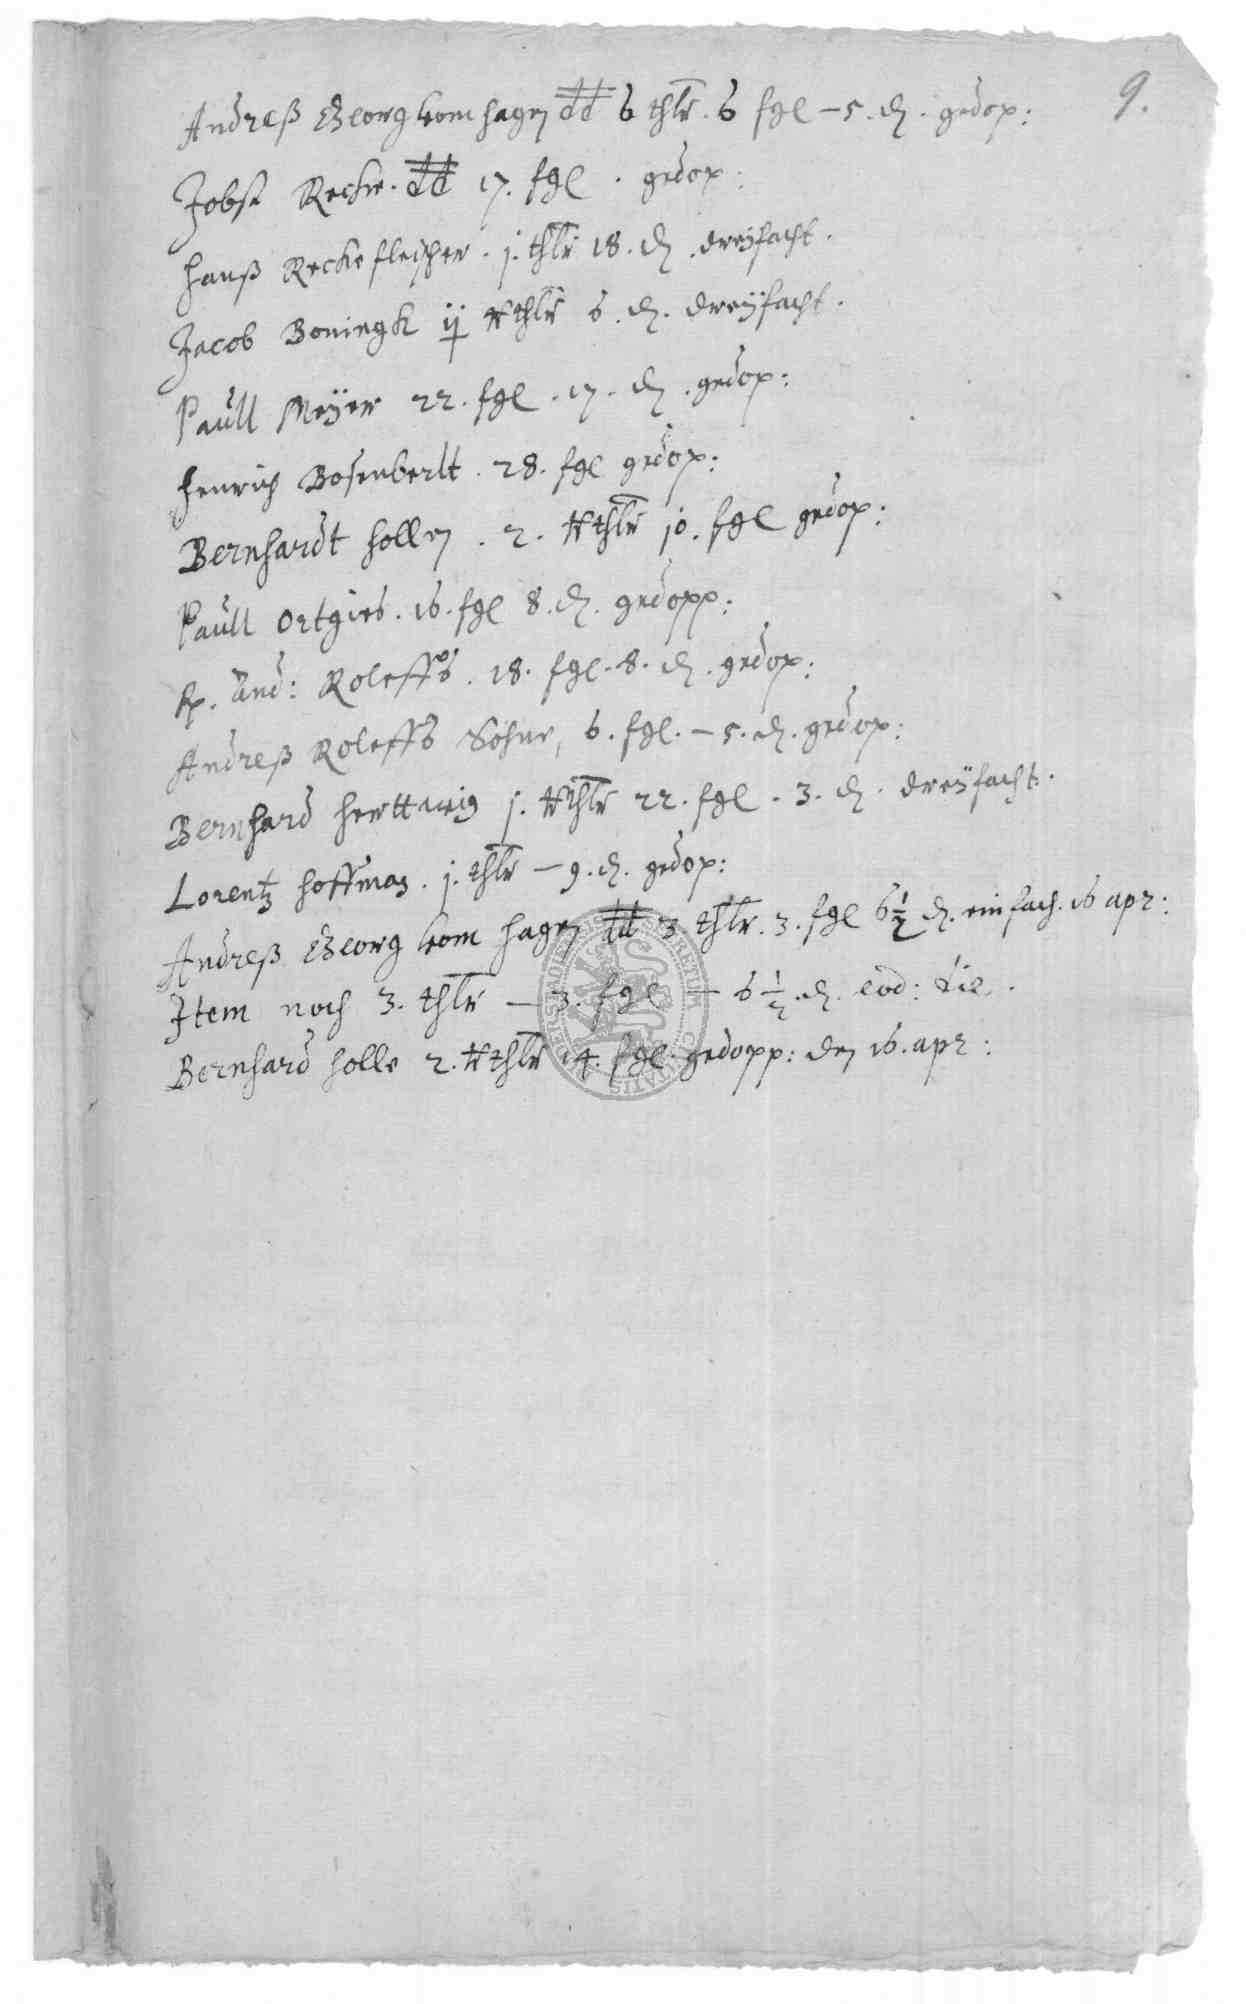 9.
Andreß Georg vom hagen dd 6 thlr. 6 fgl – 5. d. gedop:
Jobst Recke. dd 17. fgl. gedop:
Hanß Reckefleischer. j. thlr 18. d. dreyfacht.
Jacob Boningk ij Rthlr 6. d. dreÿfacht.
Paull Meÿer 22. fgl. 17. d. gedop:
Henrich Bosenberlt. 28. fgl gedop:
Bernhardt Hollen. 2. Rthlr jo. fgl gedop:
Paull Ortgies. 16. fgl 8. d. gedopp:
And: Roleffs. 18. fgl. 8. d. gedop:
Andreß Roleffs Sohne, 6. fgl. – 5. d. gedop:
Bernhard Herttwig j. Rthlr 22. fgl. 3. d. dreÿfacht.
Lorentz Hoffman. j. thlr – 9. d. gedop:
Andreß Georg vom hagen dd 3. thlr. 3. fgl 6½ d. einfach. 16 apr:
Item noch 3. thlr – 3. fgl – 6½. d. eod: die.
Bernhard Holle 2. Rthlr 14. fgl. gedopp: den 16. apr: